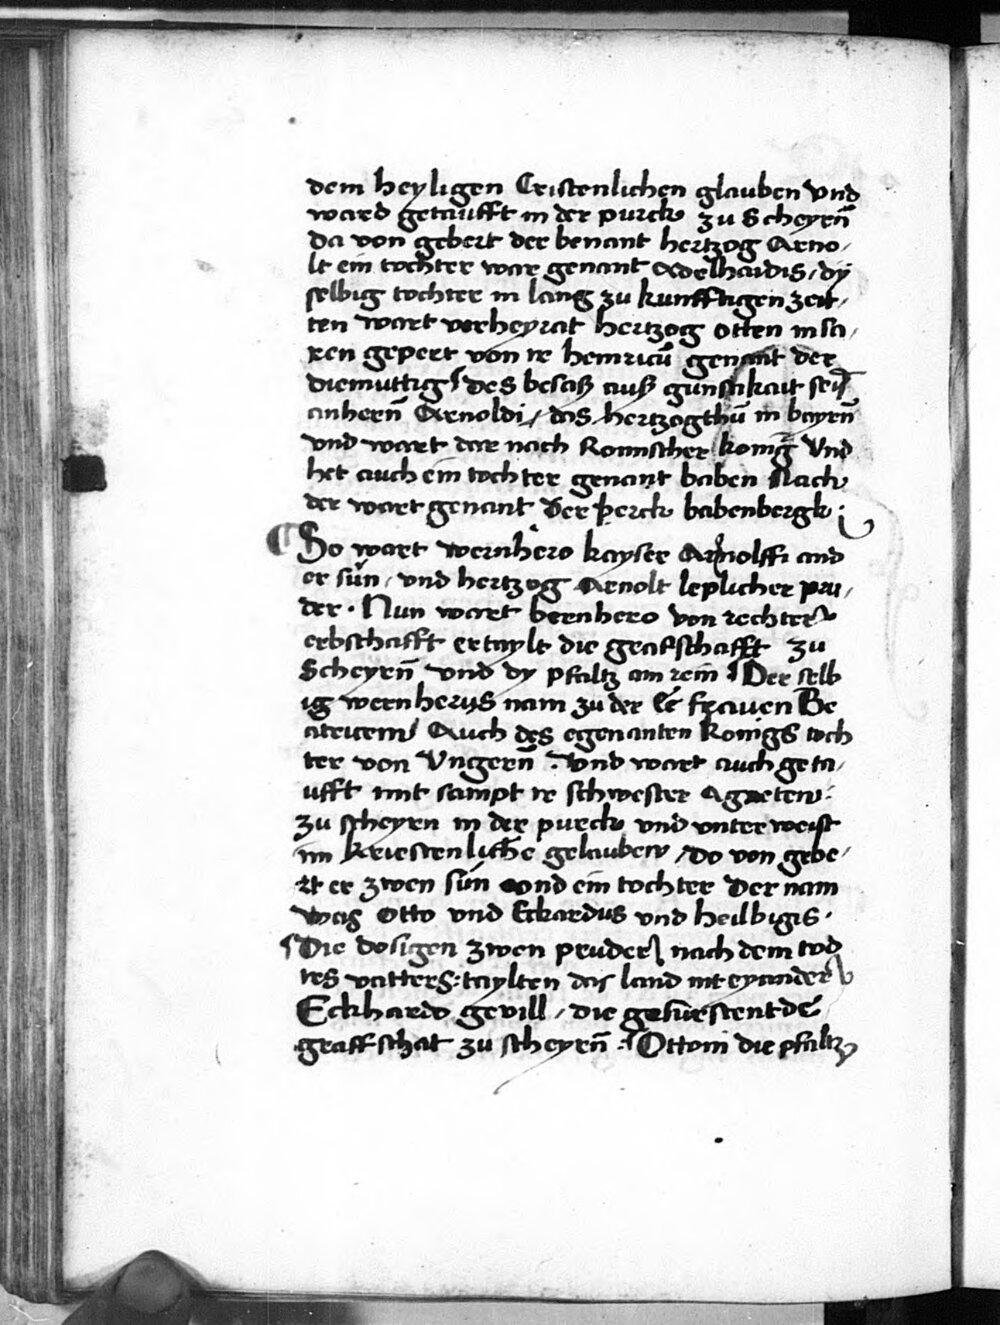 dem heyligen Cristenlichen glauben vnd
ward getaufft in der purck zu Scheyrñ
Da von gebert der benant hertzog Arno-
lt ein tochter war genant Adelhaidis / dy
selbig tochter in lang zu kunfftigen zeit-
ten wart verheyrat hertzog otten in sa-
xen gepert von ir heinricũ genant der
diemuttig / des besaß auß gunstikait sein
anherñ Arnoldi / das hertzogthũ in bayrñ
vnd wart dar nach Romischer konig Vnd
het auch ein tochter genant baben Nach
der wart genant Der perck babenbergk :
So wart wernhero kayser Arnolffi and
er sun / vnd hertzog Arnolt leplicher pru-
der . Nun wart bernhero von rechter
erbschafft ertaylt die grafschafft zu
Scheyrñ vnd dy pfaltz am rein Der selb
ig wernherus nam zu der Ee frauen Be
atricem Auch des egenanten konigs toch
ter von Vngerñ . Vnd wart auch geta-
ufft mit sampt ir schwester Agneten :
zu scheyrn in der purck vnd vnter weist
im kriestenlichē gelauben / do von gebe-
rt er zwen sun vnd ein tochter Der nam
was Otto vnd Eckardus vnd heilbigis .
Die dosigen zwen pruder nach dem tod
tes vatters : taylten das land mit eynander
Eckhardo gevill / die gefurstent dē
graffschat zu scheyrñ : Ottoni die pfaltz